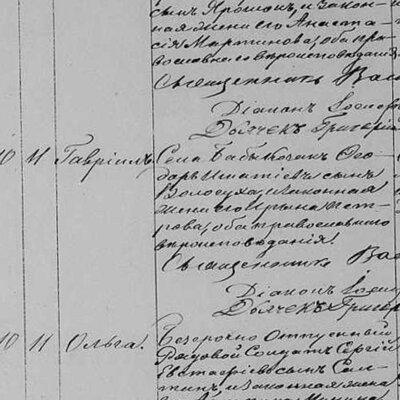 сынъ Ярошон, и закон-
ная жена его Анаста-
сія Мартинова, оба пра-
вославнаго вѣроисповѣданія
Священникъ Вас
Діаконъ Іосифъ
Дьячекъ Григорій
10 11 Гавріилъ Села Бабы Ѳео-
доръ Игнатіевъ сынъ
Волосуха, и законная
жена его Ирина Пет-
рова, оба православнаго
вѣроисповѣданія.
Священникъ Вас
Діаконъ Іосиф
Дьячекъ Григор
10 11 Ольга. Безсрочно Отпускный
Рядовой Солдатъ Сергій
Евстафіевъ сынъ
и законная жена